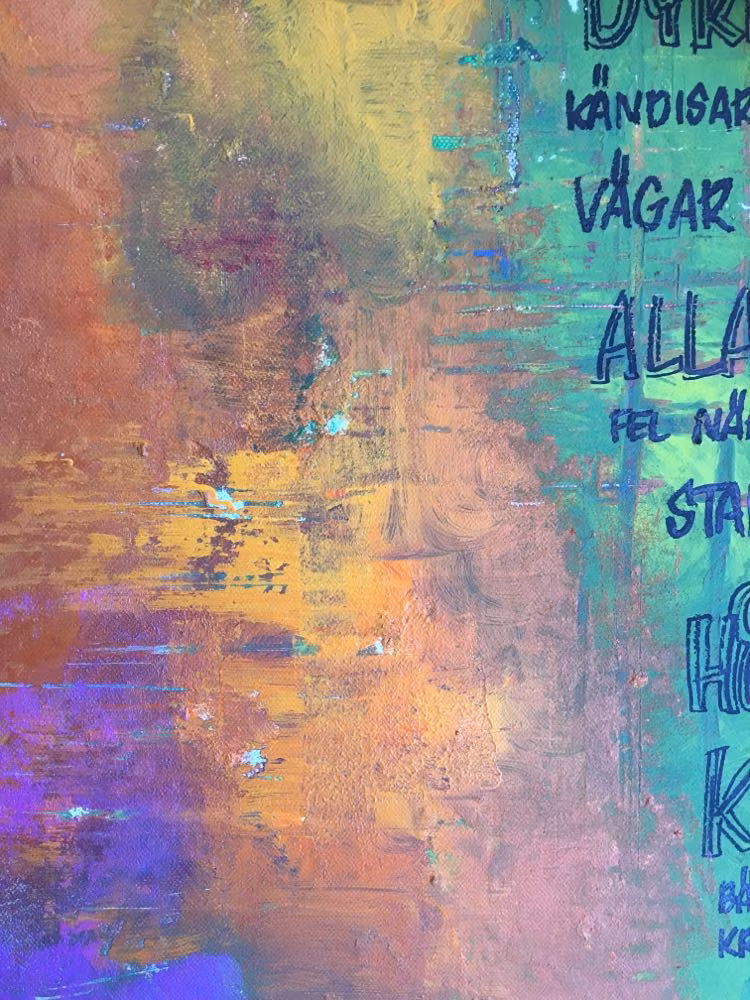 DYR
KÄNDISAR
VÄGAR
ALLA
FEL NÄR
STA
HÖ
K
BÄ
KR